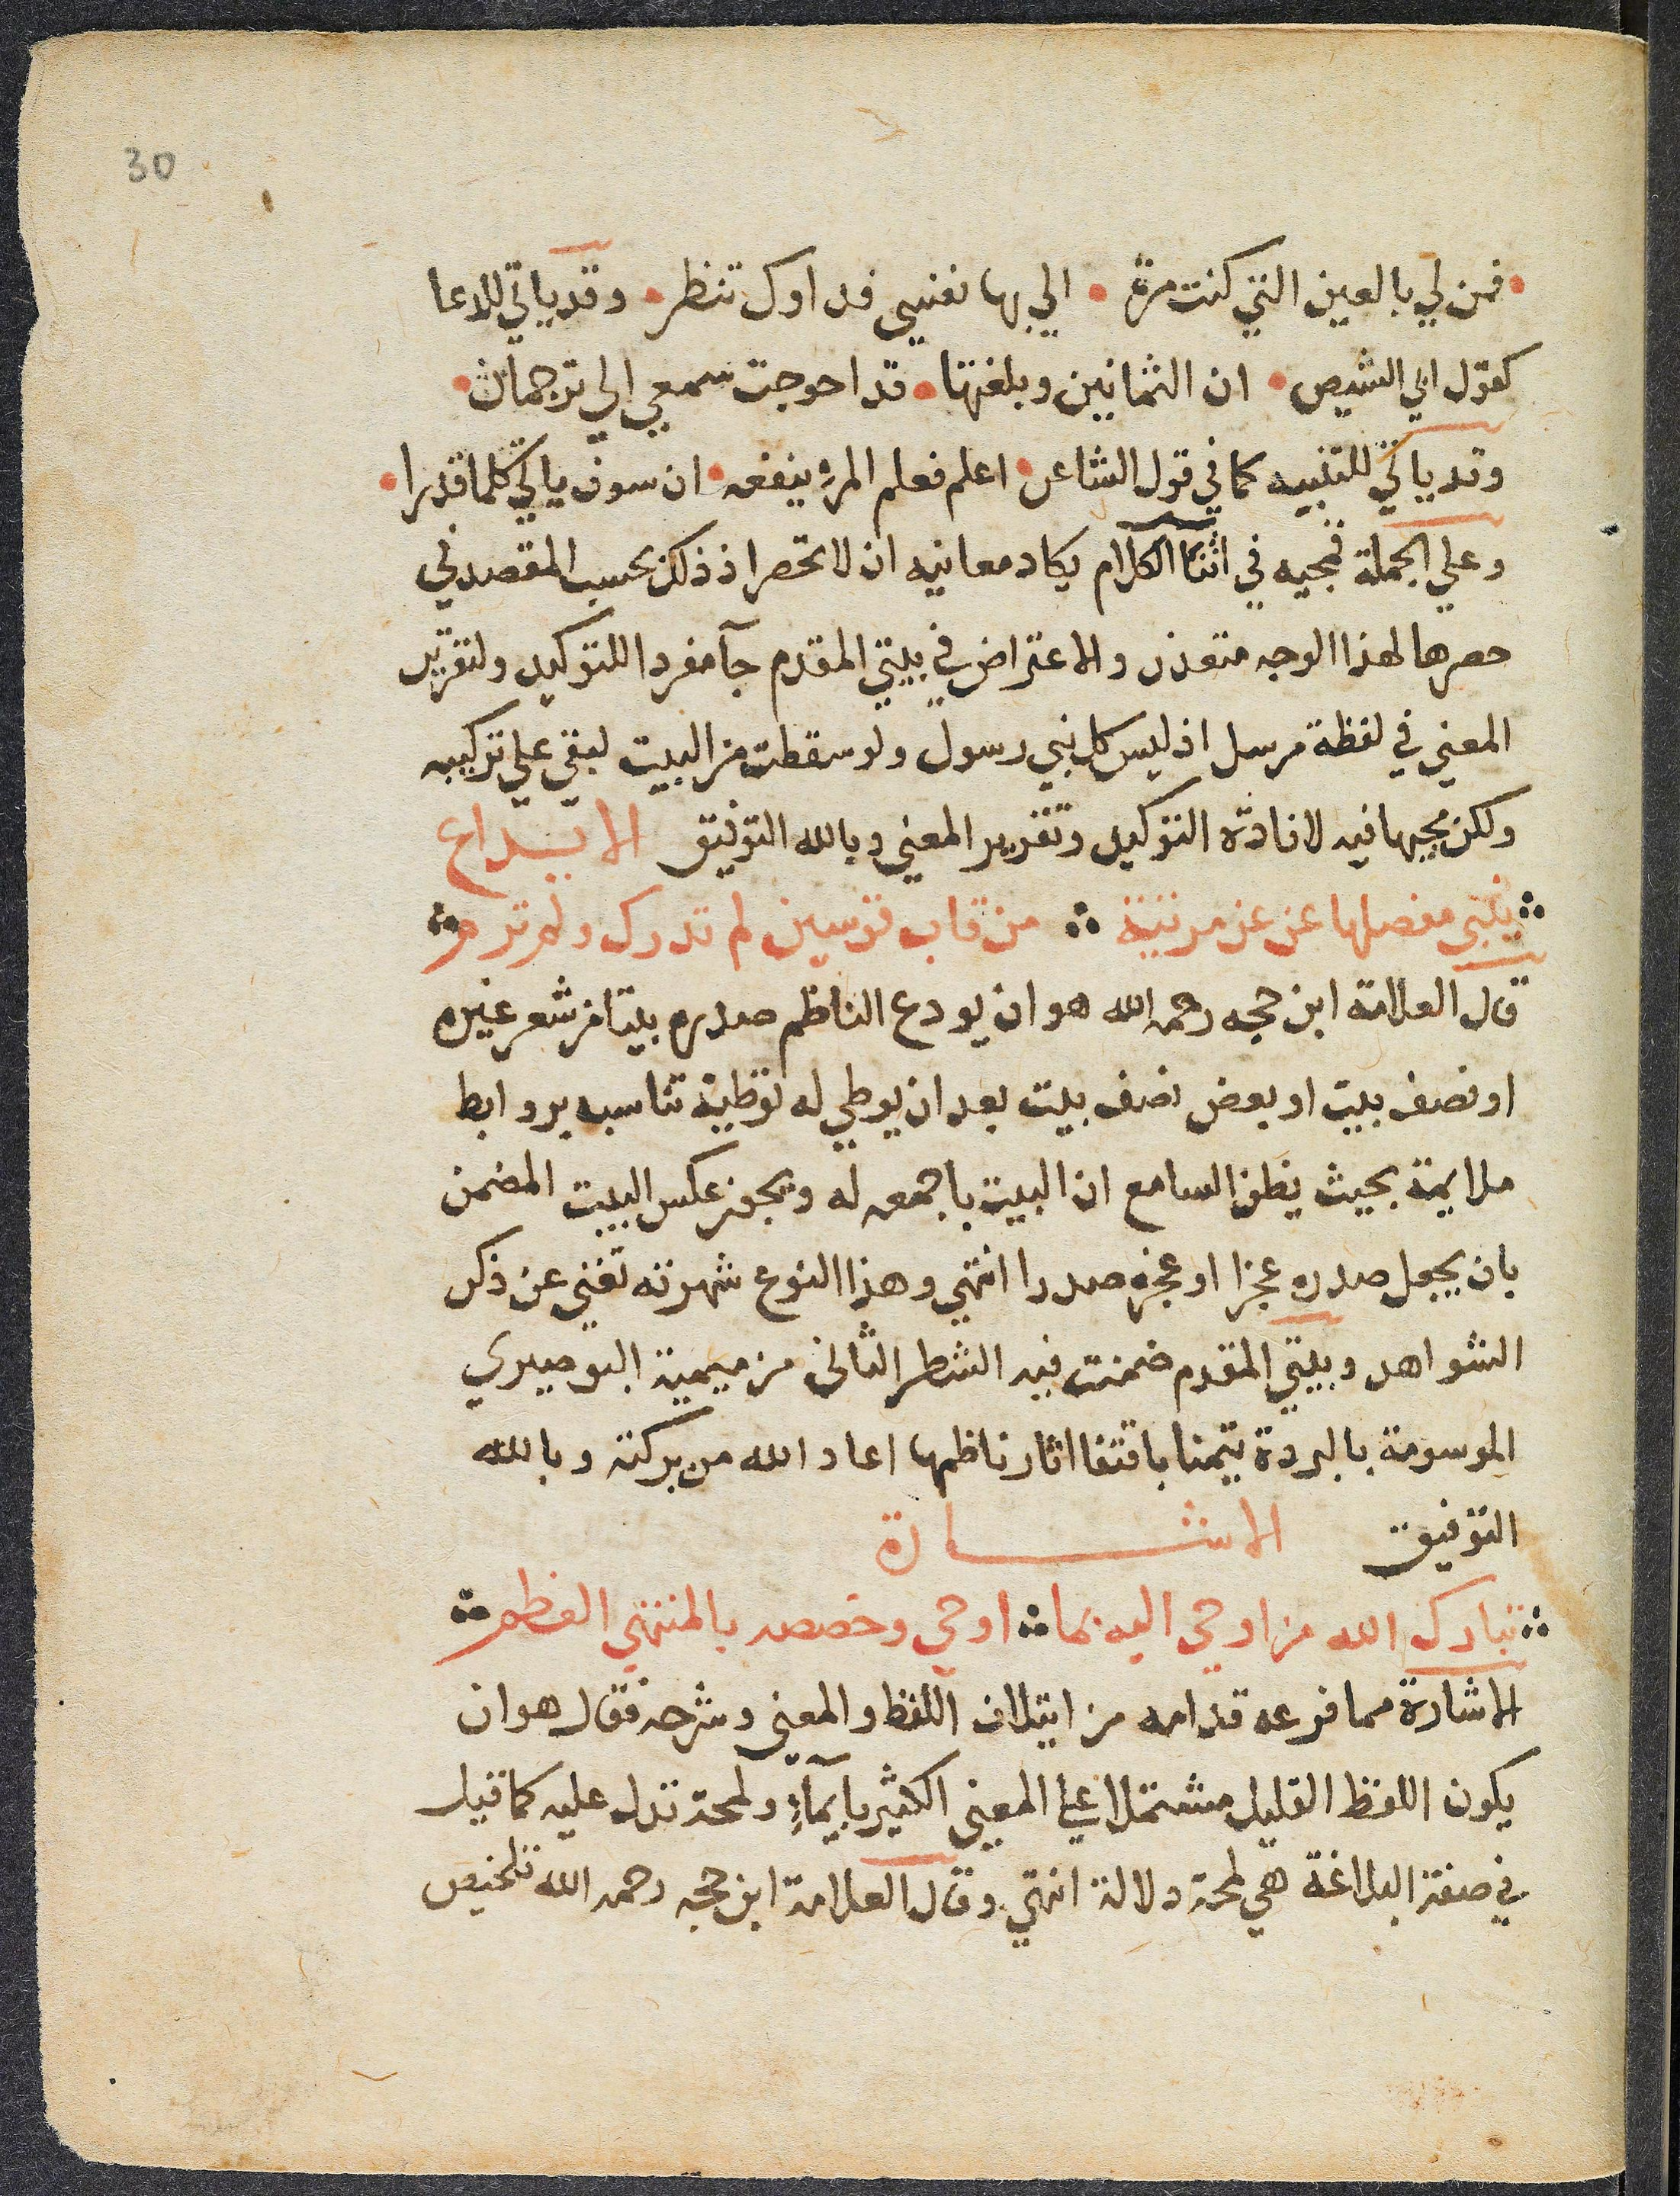 30
فمن لي بالعين التي كنت مرة • الي بها نفسي فداوك تنظر • وقد ياتي للدعا
كقول ابي الشيص • ان الثمانين وبلغتها • قد احوجت سمعي الي ترجمان •
وقد ياتي للتنبيه كما في قول الشاعر • اعلم فعلم المرء ينفعه • ان سوف ياتي كلما قدرا •
وعلي الجملة فمجيه في اثنا الكلام يكاد معانيه ان لا تحصر اذ ذلك بحسب المقصد في
حصرها لهذا الوجه متعذر والاعتراض في بيتي المقدم جآ مفردا للتوكيد ولتقرير
المعني في لفظة مرسل اذ ليس كل نبي رسول ولو سقطت من البيت لبقي علي تركيبه
ولكن مجيها فيه لافادة التوكيد وتقرير المعني وبالله التوفيق الايداع
ينبي مفصلها عن عز مرتبة ∴ من قاب قوسين لم تدرك ولم ترم ∴
قال العلامة ابن حجه رحمه الله هو ان يودع الناظم صدره بيتا من شعر غيره
او نصف بيت او بعض نصف بيت بعد ان يوطي له توطية تناسبه بروابط
ملايمة بحيث يظن السامع ان البيت باجمعه له ويجوز عكس البيت المضمن
بان يجعل صدره عجزا او عجزه صدرا انتهي وهذا النوع شهرته تغني عن ذكر
الشواهد وبيتي المقدم ضمنت فيه الشطر الثاني من ميمية البوصيري
الموسومة بالبردة تيمنا باقتفا اثار ناظمها اعاد الله من بركته وبالله
التوفيق الاشارة
∴ تبارك الله من اوحي اليه بما ∴ اوحي وخصصه بالمنتهي العظم ∴
الاشارة مما فرعه قدامه من ايتلاف اللفظ والمعني وشرحه فقال هو ان
يكون اللفظ القليل مشتملا علي المعني الكثير بايمآءٍ ولمحة تدل عليه كما قيل
في صفة البلاغة هي لمحة دلالة انتهي وقال العلامة ابن حجه رحمه الله تلخيص